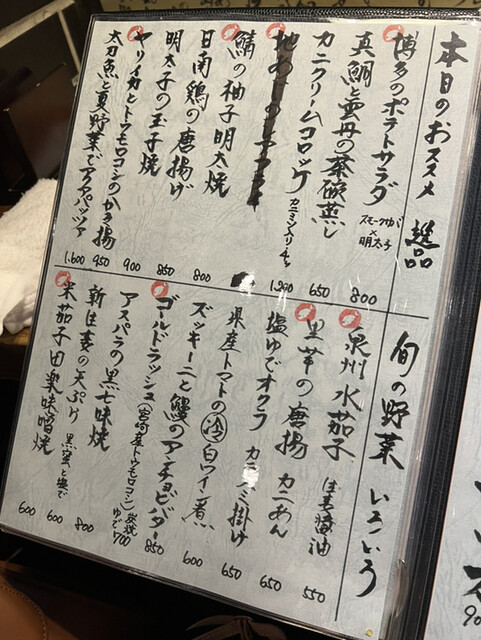 本日のおススメ 逸品
博多のポテトサラダ スモークのり × 明太子 800
真鯛と雲丹の茶碗蒸し 650
カニクリームコロッケ カニミソ入り・4ヶ 1,200
鯖の柚子明太焼
日南鶏の唐揚げ 800
明太子の玉子焼 850
ヤリイカとトウモロコシのかき揚 900 950
太刀魚と夏野菜でアクアパッツァ 1,600
旬の野菜 いろいろ
泉州水茄子 生姜醤油 550
里芋の唐揚 カニあん 650
塩ゆでオクラ カニミソ掛け 650
県産トマトの冷白ワイン煮 600
ズッキーニと鰻のアンチョビバター 850
ゴールドラッシュ(宮崎産トウモロコシ) 炭焼 ゆで 700
アスパラの黒七味焼 800
新生姜の天ぷら 600
米茄子田楽味噌焼 600